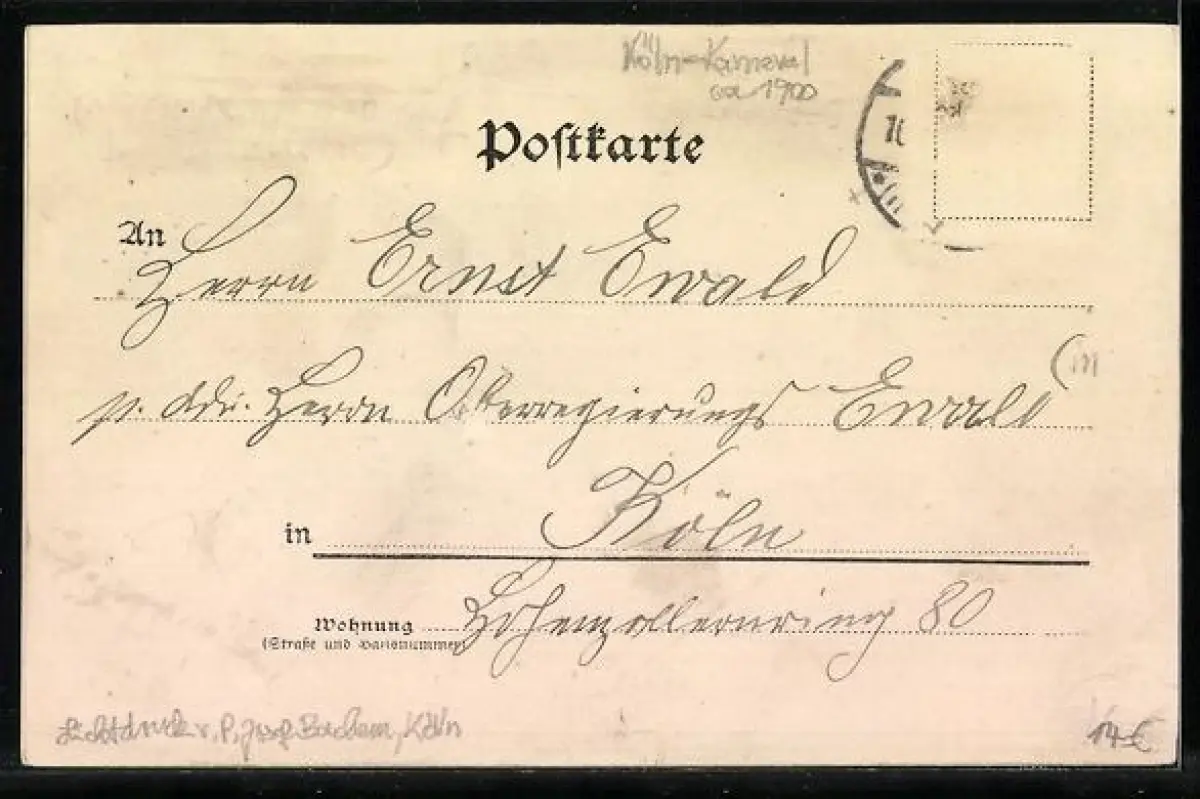 Köln-Karneval
ca 1900
Postkarte
An
Herrn Ernst Ewald
p. Adr. Herrn Oberregierungs Ewald
in Köln
Wohnung Hohenzollernring 80
(Straße und Hausnummer)
Lichtdruck v. P. Josef Bachem, Köln
14€